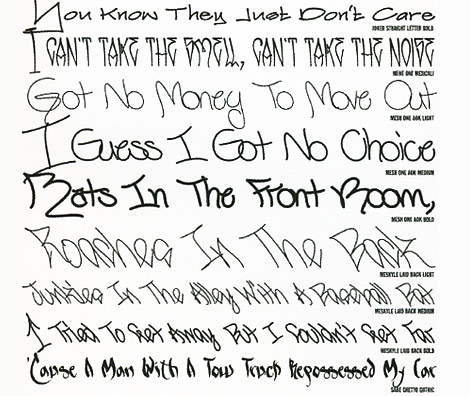 You Know They Just Don't Care
JOKER STRAIGHT LETTER BOLD
I CAN'T TAKE THE SMELL, CAN'T TAKE THE NOISE
MENE ONE MEXICALI
Got No Money To Move Out
MESH ONE AOK LIGHT
I Guess I Got No Choice
MESH ONE AOK MEDIUM
Rats In The Front Room,
MESH ONE AOK BOLD
Roaches In The Back
MESKYLE LAID BACK LIGHT
Junkies In The Alley With A Baseball Bat
MESKYLE LAID BACK MEDIUM
I Tried To Get Away But I Couldn't Get Far
MESKYLE LAID BACK BOLD
'Cause A Man With A Tow Truck Repossessed My Car
SABE GHETTO GOTHIC